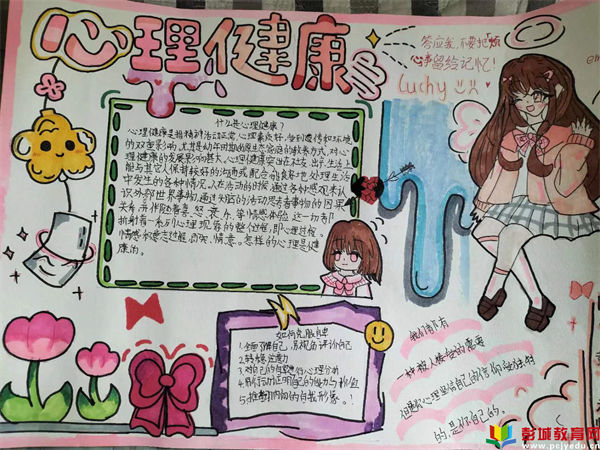 心理健康
答应我,不要把烦
心事留给记忆!
Luchy
什么是心理健康?
心理健康是指精神活动正常、心理素质好,受到遗传和环境
的双重影响,尤其是幼年时期的原生态家庭的教养方式,对心
理健康的发展影响甚大,心理健康突出在社交、生产、生活上
能与其它人保持较好的沟通或配合能良好地处理生活
中发生的各种情况,人在活动的时候,通过各种感观来认
识外部世界事物,通过头脑的活动思考着事物的因果
关系,并伴随着喜、怒、哀、乐、等情感体验,这一切都
折射着一系列心理现象的整个过程,即心理过程、
情感和意志过程,简知、情意、怎样的心理是健
康的。
如何克服自卑
1.全面了解自己,客观的评价自己
2.转移注意力
3.对自己的自卑进行心理分析
4.用行动证明自己的能力与价值
5.推翻内向的自我形象。!
我们都有
一种被人需要的需要
但要心理坚信自己的信仰任独特
的是你自己的。
彭城教育网
www.pcjyedu.cn